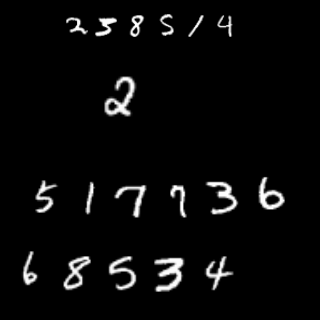 238514
2
517736
68534